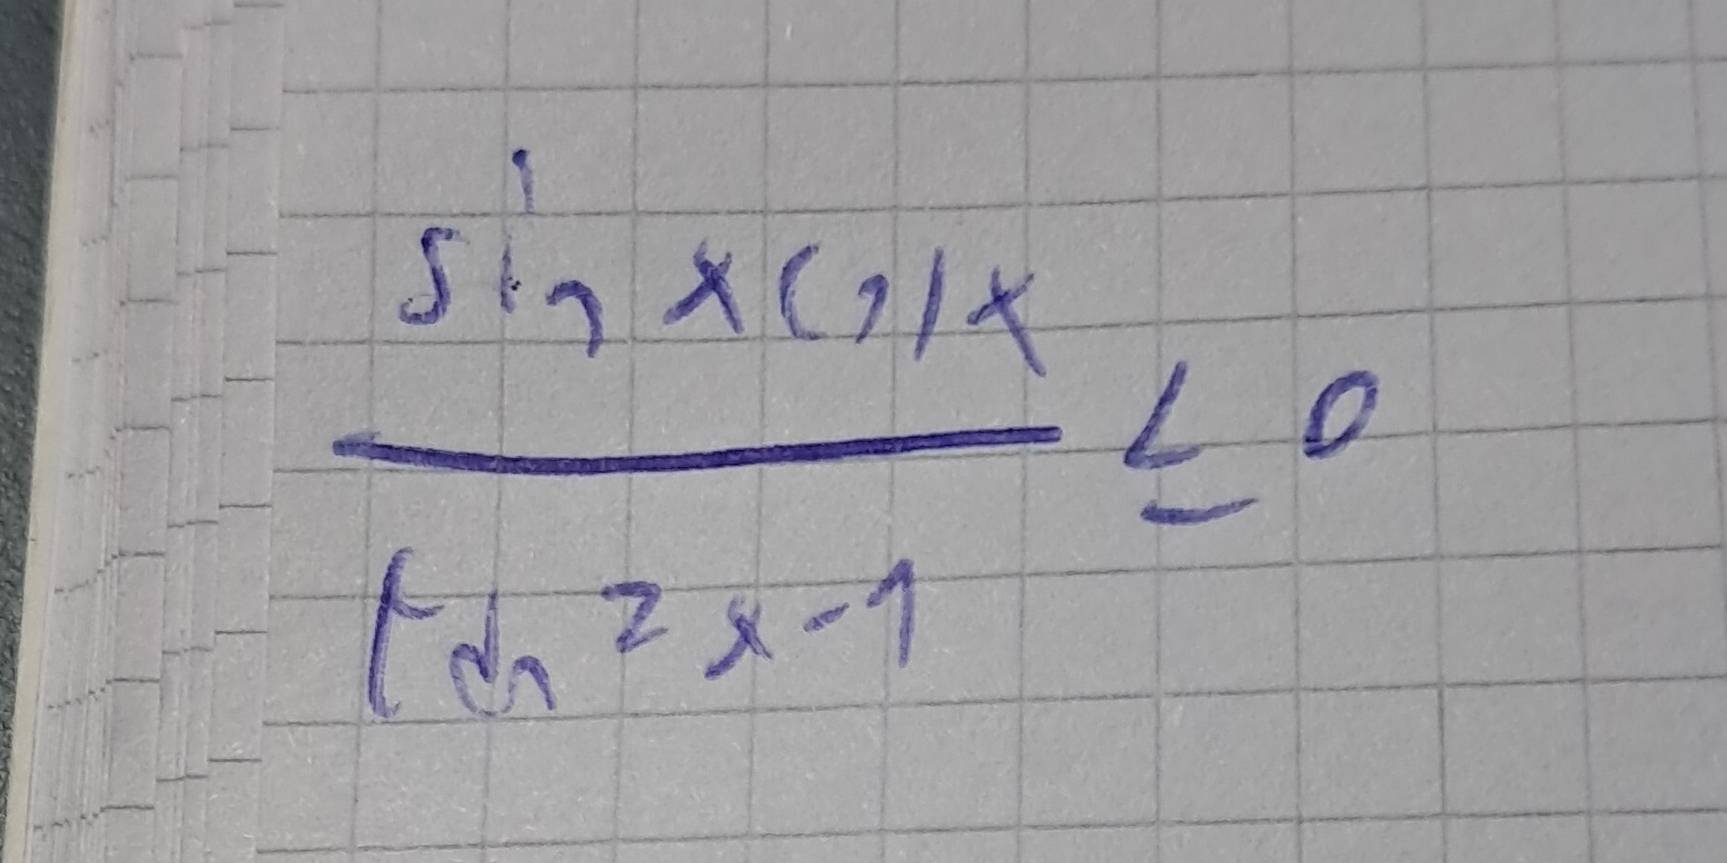 sin x cos x
≤ 0
tan² x - 1